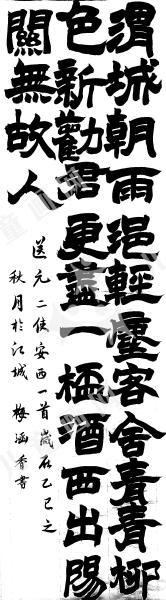 渭城朝雨浥輕塵客舍青青柳
色新勸君更盡一桮酒西出陽
關無故人
送元二使安西一首歲在乙巳之
秋月於江城 梅涵香書